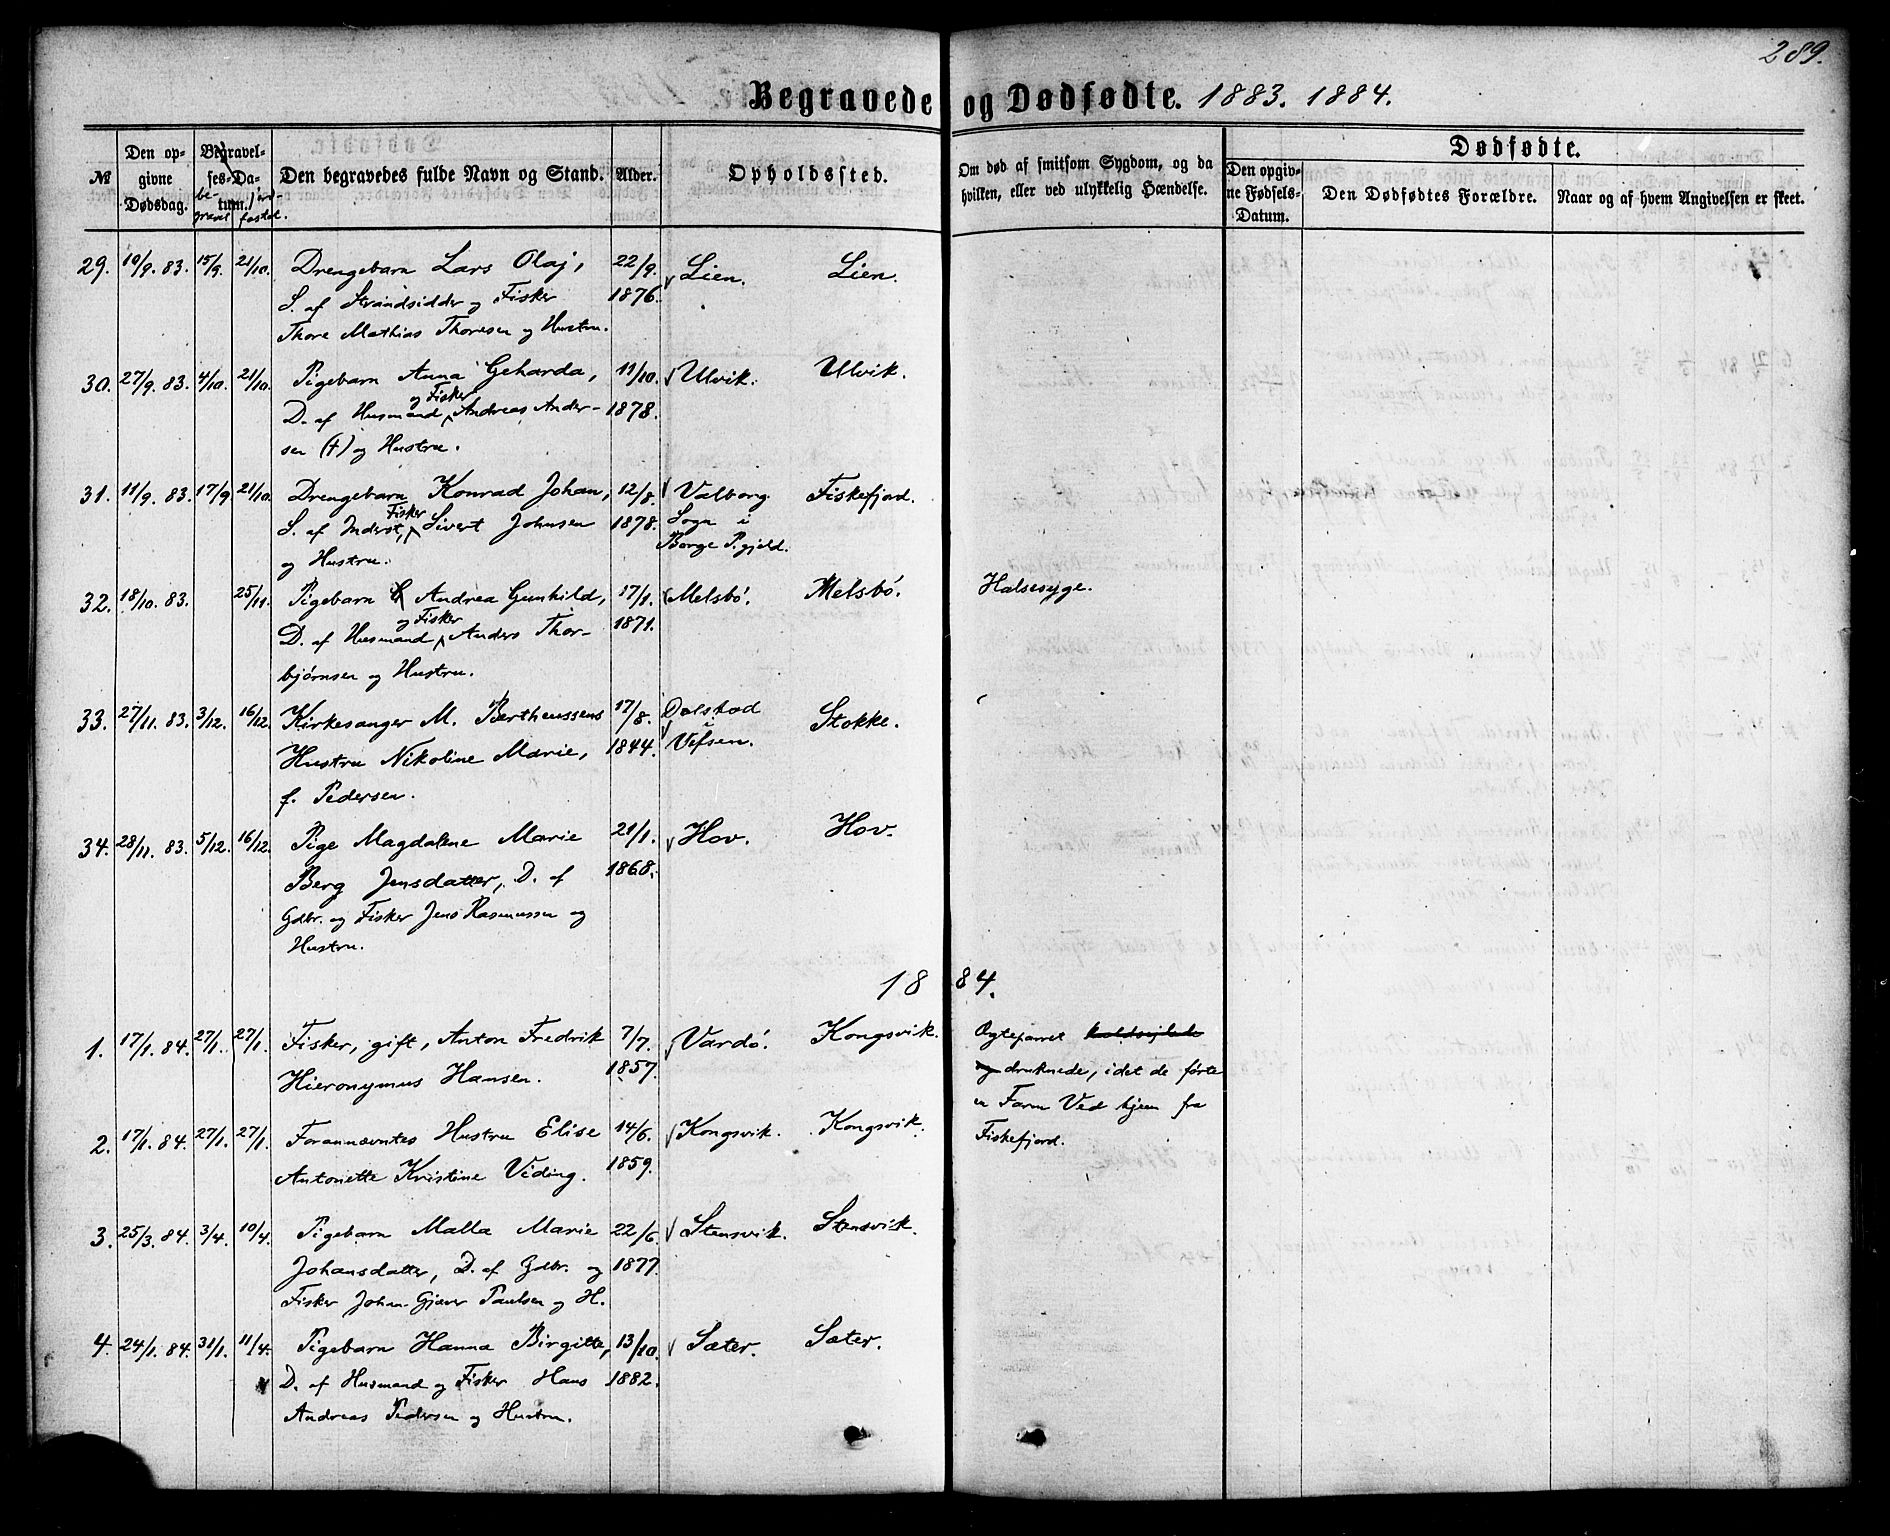 289.
Begravede og Dødfødte. 1883. 1884.
№
Den opgivne Dødsdag.
Begravelses-Datum.
begravet
jordfæstet.
Den begravedes fulde Navn og Stand.
Alder.
Opholdssted.
Om død af smitsom Sygdom, og da hvilken, eller ved ulykkelig Hændelse.
Dødfødte.
Den opgivne Fødsels-Datum.
Den Dødfødtes Forældre.
Naar og af hvem Angivelsen er skeet.
29. 10/9. 83. 15/9. 21/10. Drengebarn Lars Olaj, 22/9. Lien. Lien.
S. af Strandsidder og Fisker 1876.
Thore Mathias Thoresen og Hustru.
30. 27/9. 83. 4/10. 21/10. Pigebarn Anna Geharda, 11/10. Ulvik. Ulvik.
og Fisker
D. af Husmand Andreas Ander- 1878.
sen (†) og Hustru.
31. 11/9. 83. 17/9 21/10. Drengebarn Konrad Johan, 12/8. Valborg Fiskefjord.
Fisker
S. af Inderst, Sivert Johnsen 1878. Sogn i
og Hustru. Borge P.gjeld.
32. 18/10. 83. 25/11. Pigebarn Andrea Gunhild, 17/1. Melsbø. Melsbø. Halsesyge.
og Fisker
D. af Husmand Anders Thor- 1871.
bjørnsen og Hustru.
33. 27/11. 83. 3/12. 16/12. Kirkesanger M. Bertheussens 17/8. Dolstad Stokke.
i
Hustru Nikoline Marie, 1844. Vefsen.
f. Pedersen.
34. 28/11. 83. 5/12. 16/12. Pige Magdalene Marie 21/1. Hov. Hov.
Berg Jensdatter, D. af 1868.
Gdbr. og Fisker Jens Rasmussen og
Hustru.
1884.
1. 17/1. 84. 27/1. 27/1. Fisker, gift, Anton Fredrik 7/7. Vardø. Kongsvik. Ægteparret koldsejlede
Hieronymus Hansen. 1857. og druknede, idet de førte
en Farm Ved hjem fra
2. 17/1. 84. 27/1. 27/1. Forannævntes Hustru Elise 14/6. Kongsvik. Kongsvik. Fiskefjord.
Antonette Kristine Viding. 1859.
3. 25/3. 84. 3/4. 10/4. Pigebarn Malla Marie 22/6. Stensvik. Stensvik.
Johansdatter, D. af Gdbr. og 1877.
Fisker Johan Gjæver Paulsen og H.
4. 24/1. 84. 31/1. 11/4. Pigebarn Hanna Birgitte, 13/10. Sæter. Sæter.
D. af Husmand og Fisker Hans 1882.
Andreas Pedersen og Hustru.